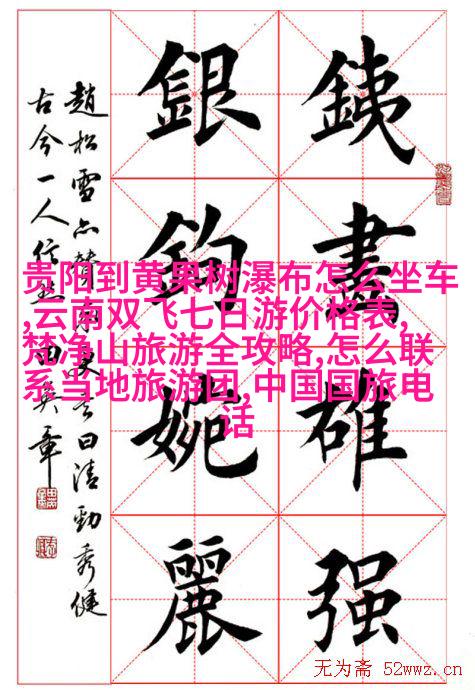 銕畫雄强
銀鉤婉麗
趙松雪亦曰清勁秀健
古今一人信然田英章
贵阳到黄果树瀑布怎么坐车
,云南双飞七日游价格表,
梵净山旅游全攻略,怎么联
系当地旅游团,中国国旅电
话
无为斋 52wwz.cn